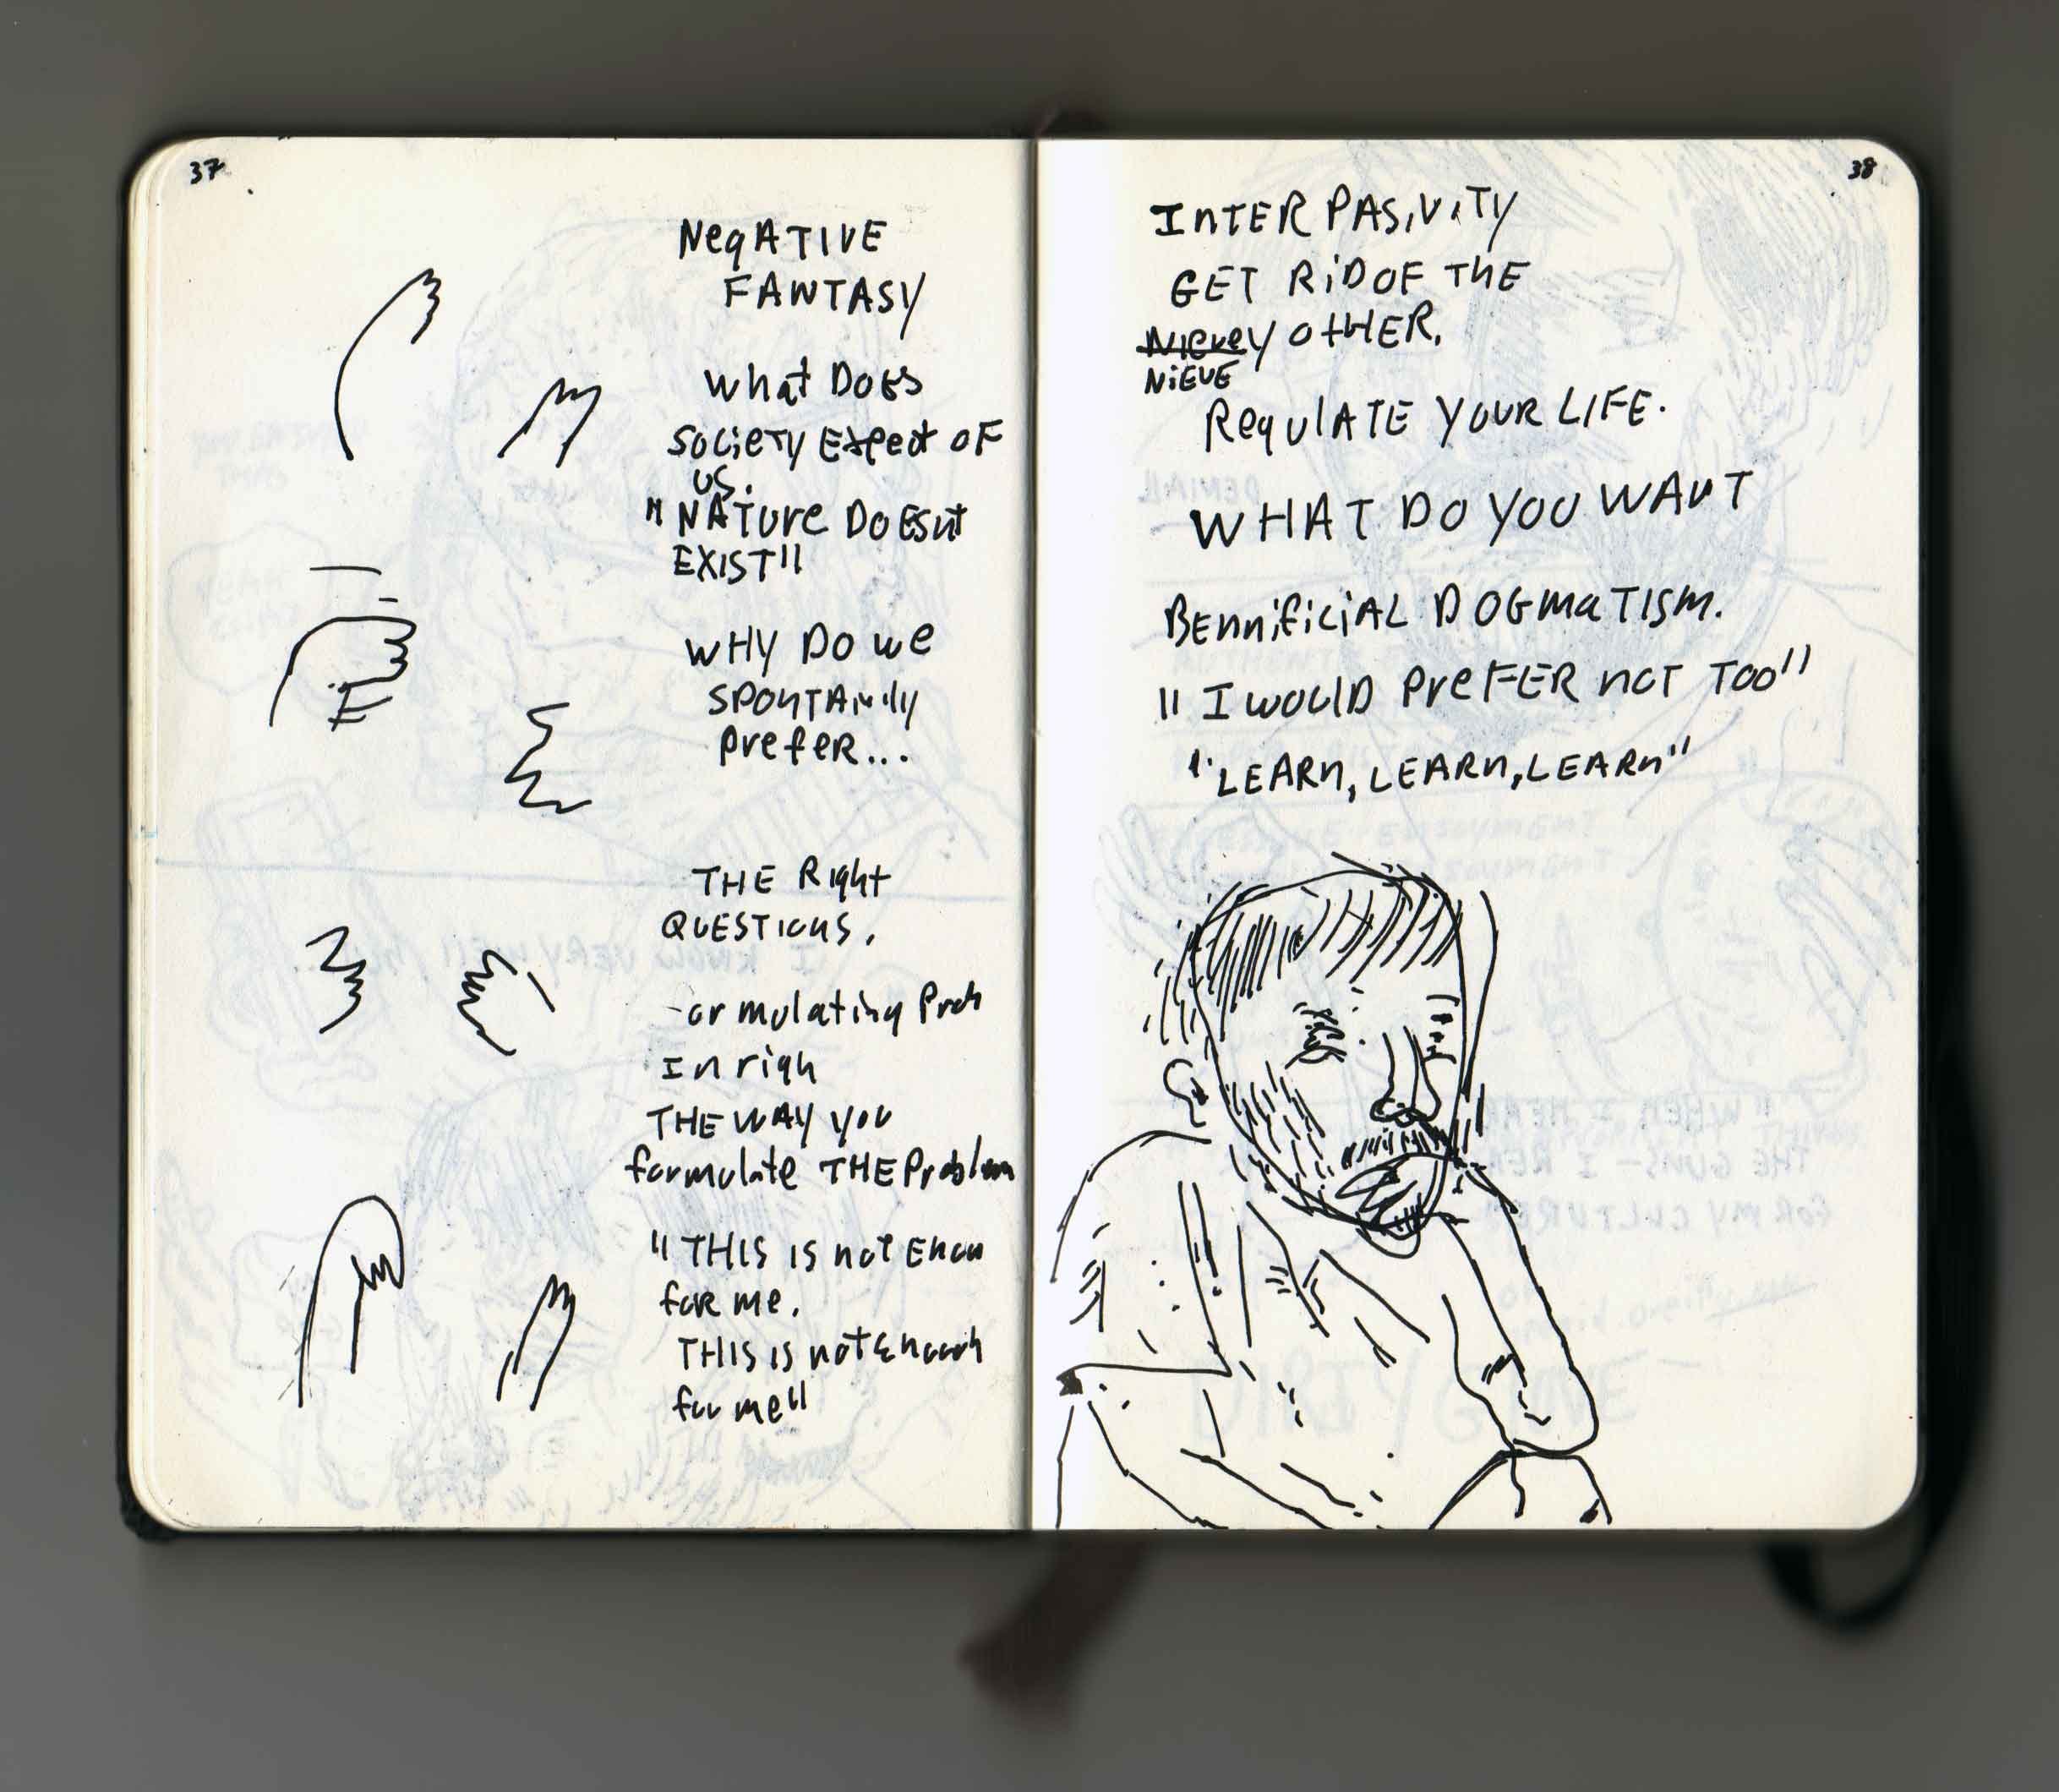 37
NEgATIVE
FANTASY
What DOES
SOCiETY EXPect OF
US.
"NATure DOESnt
EXIST"
WHY DO we
SPONTANily
PrefeR...
THE RIght
QUESTIONS.
-ormulating Prob
In righ
THE WAY YOU
formulate THE Problem
"THIS IS not Enou
foR me.
THIS IS not Enough
for me"
38
INTER PASiViTY
GET RiD OF THE
NIEVEY OtHER.
NiEVE
REgUlATE YOUR LIFE.
WHAT DO YOU WANT
BEnnificiAL DOGmaTISm.
"I WOUlD PReFER noT TOO"
"LEARn, LEARn, LEARn"